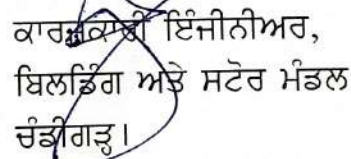 ਕਾਰਜਕਾਰੀ ਇੰਜੀਨੀਅਰ,
ਬਿਲਡਿੰਗ ਅਤੇ ਸਟੋਰ ਮੰਡਲ
ਚੰਡੀਗੜ੍ਹ।